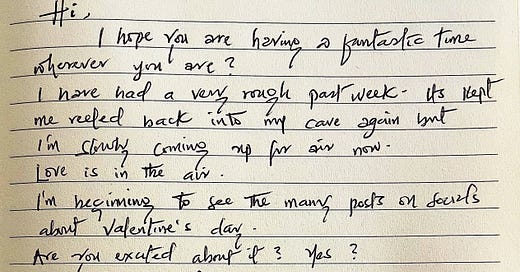 Hi,
I hope you are having a fantastic time
wherever you are?
I have had a very rough past week. Its kept
me reeled back into my cave again but
I'm slowly coming up for air now.
Love is in the air.
I'm beginning to see the many posts on socials
about Valentine's day.
Are you excited about it? Yes?